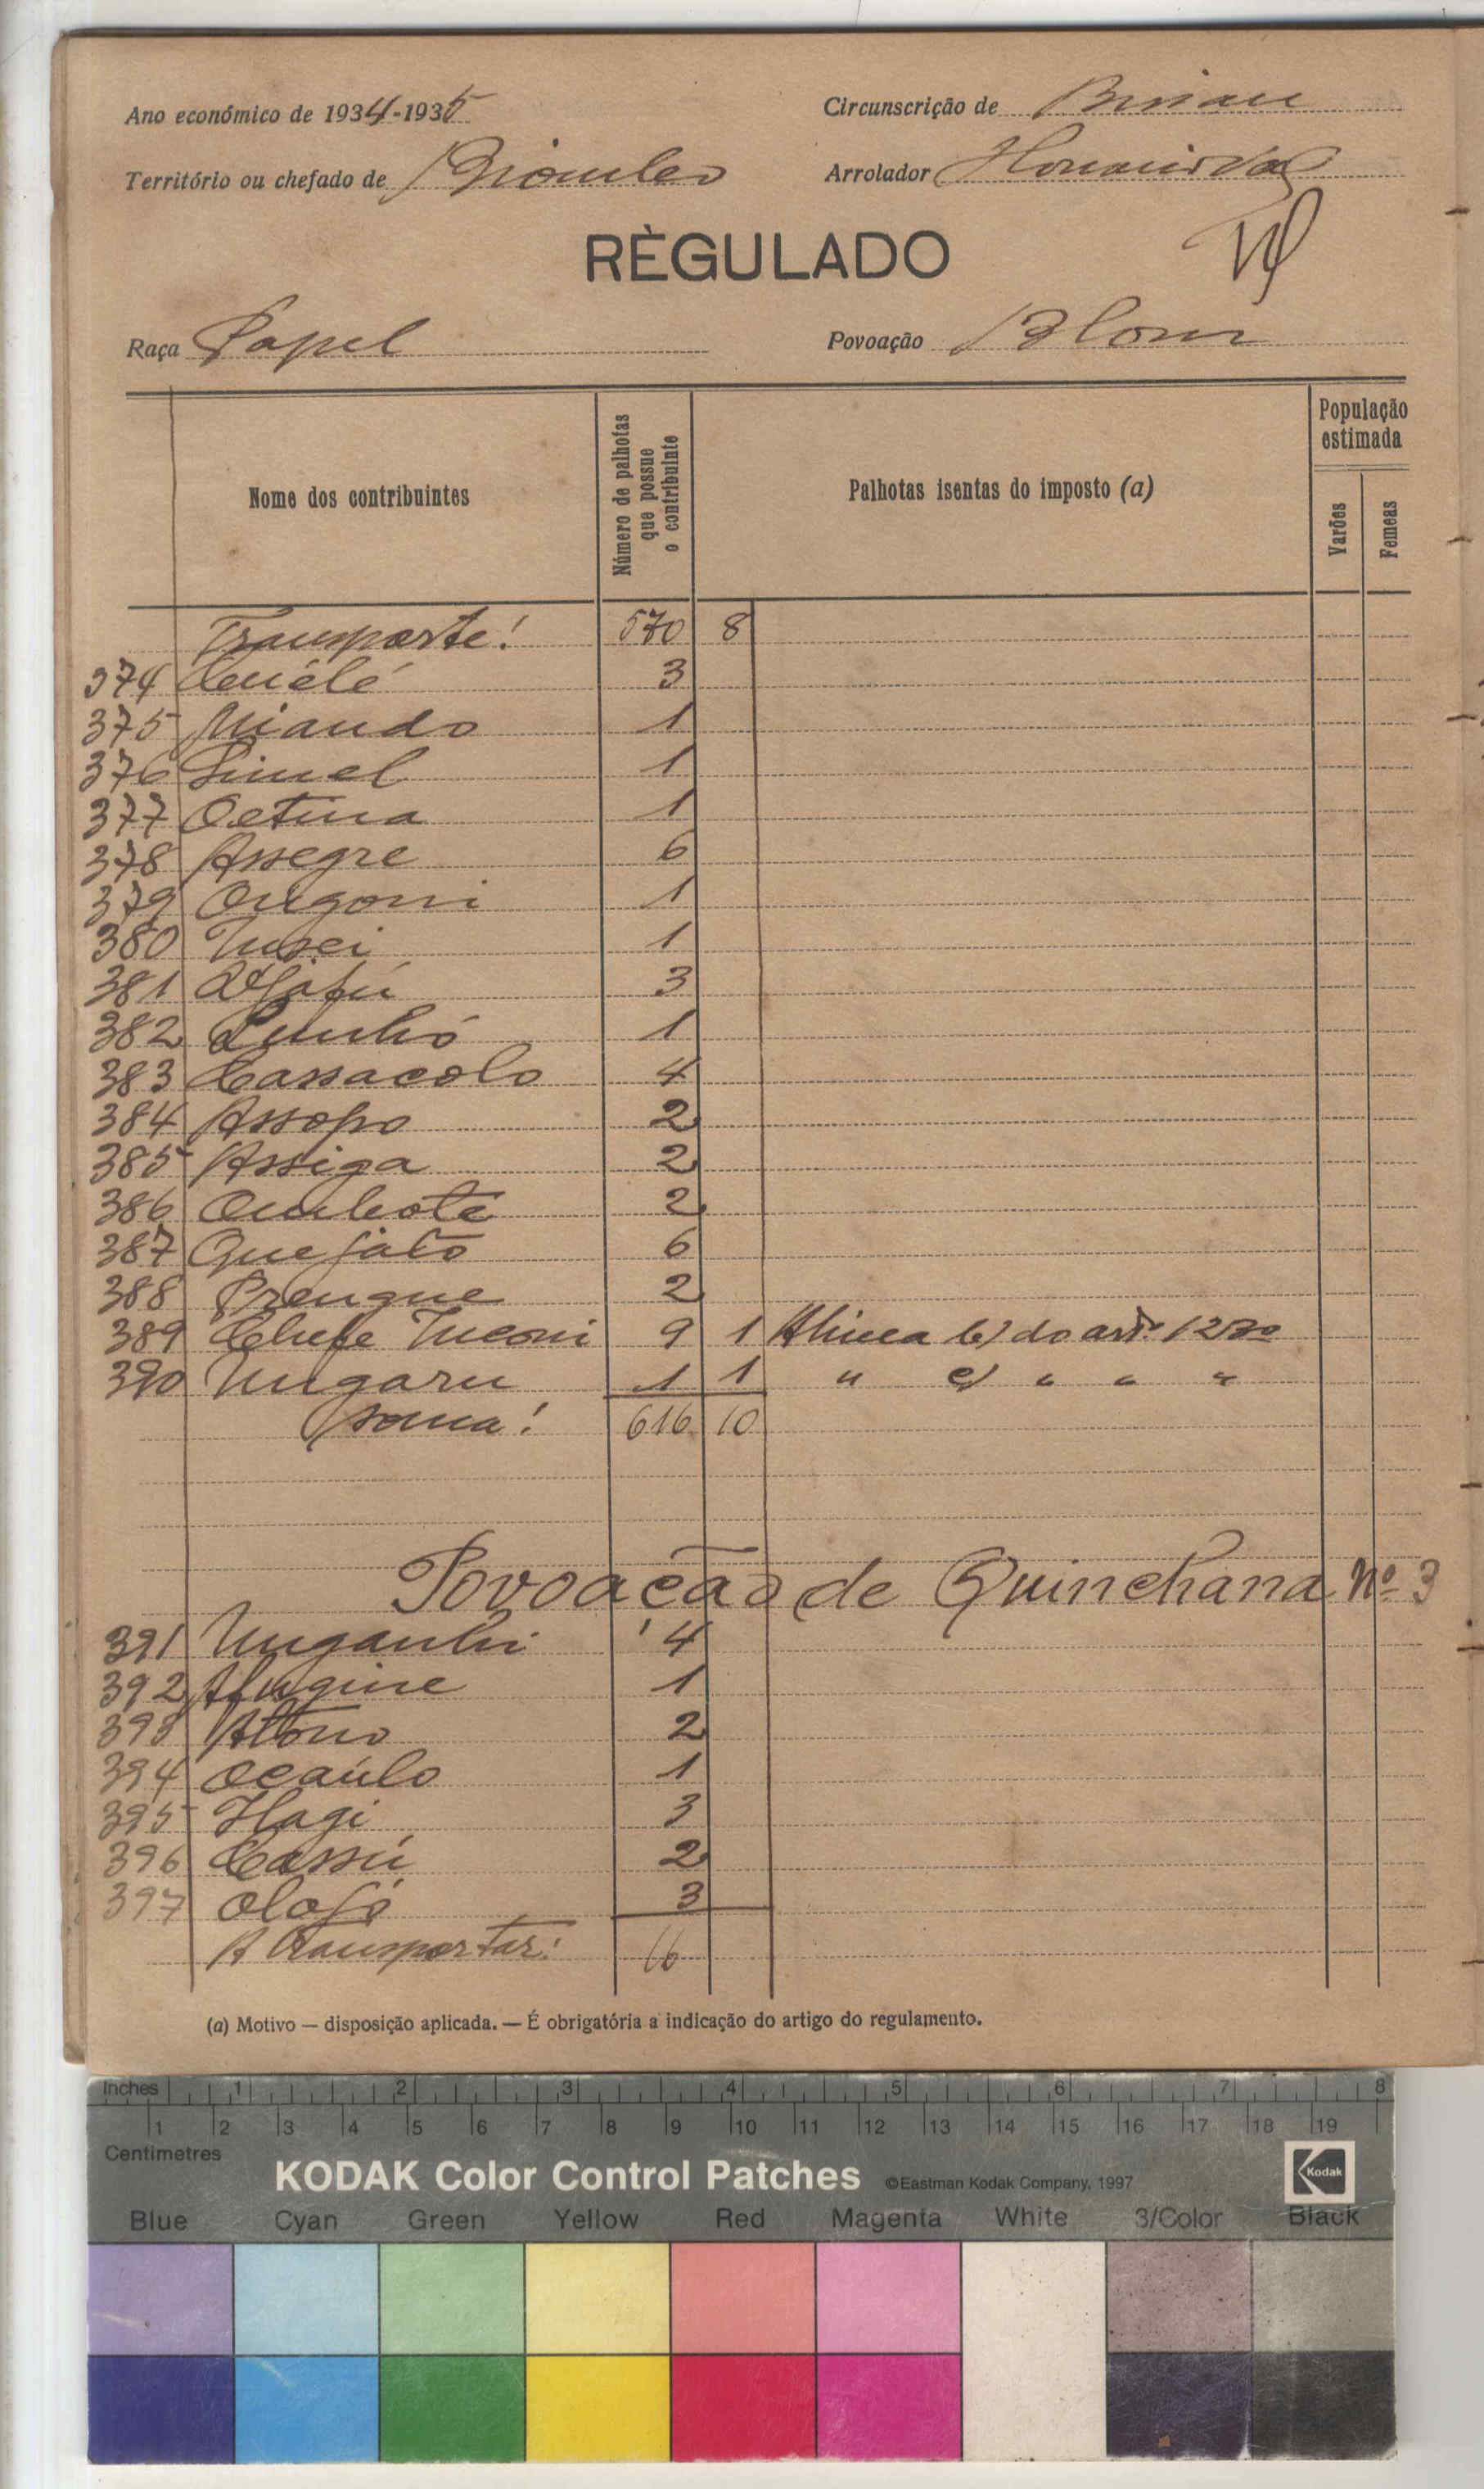 Ano económico de 1934-1935
Circunscrição de Bissau
Território ou chefado de Biombo
Arrolador
RÈGULADO
Raça Papel
Povoação Blom
Nome dos contribuintes
Número de palhotas que possue o contribuinte
Palhotas isentas do imposto (a)
População estimada
Varões
Femeas
Transporte! 570 8
374 Cuélé 3
375 Miando 1
376 Simel 1
377 Octina 1
378 Assegre 6
379 Ongoni 1
380 1
381 3
382 1
383 Cassacolo 4
384 Assopo 2
385 Assiga 2
386 Ombote 2
387 Quejato 6
388 Prengue 2
389 Chefe 9 1 Alinea b) do artº 12º
390 Ungaru 1 1 " c) " " "
Soma! 616 10
Povoação de Quinchana Nº 3
391 Unganhi 4
392 1
393 2
394 Ocaúlo 1
395 Hagi 3
396 Cassú 2
397 Olofé 3
A transportar: 16
(a) Motivo — disposição aplicada. — É obrigatória a indicação do artigo do regulamento.
Inches 1 2 3 4 5 6 7 8
1 2 3 4 5 6 7 8 9 10 11 12 13 14 15 16 17 18 19
Centimetres
KODAK Color Control Patches ©Eastman Kodak Company, 1997 Kodak
Blue Cyan Green Yellow Red Magenta White 3/Color Black